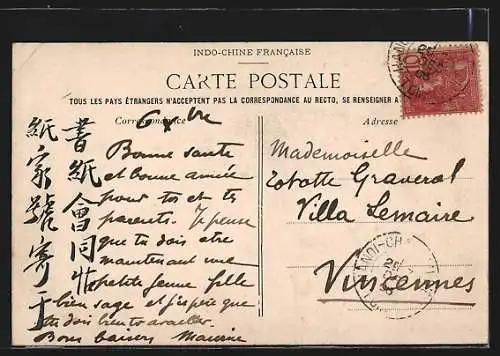 INDO-CHINE FRANÇAISE
CARTE POSTALE
TOUS LES PAYS ÉTRANGERS N'ACCEPTENT PAS LA CORRESPONDANCE AU RECTO, SE RENSEIGNER A
Correspondance
Adresse
Bonne santé
et bonne année
pour toi et tes
parents. Je pense
que tu dois être
maintenant une
petite jeune fille
bien sage et j'espère que
tu dois bien travailler.
Bons baisers
書紙會同
紙家號寄于
Mademoiselle
Totottte Graveral
Villa Lemaire
Vincennes
10
HANOI
HANOI-CH